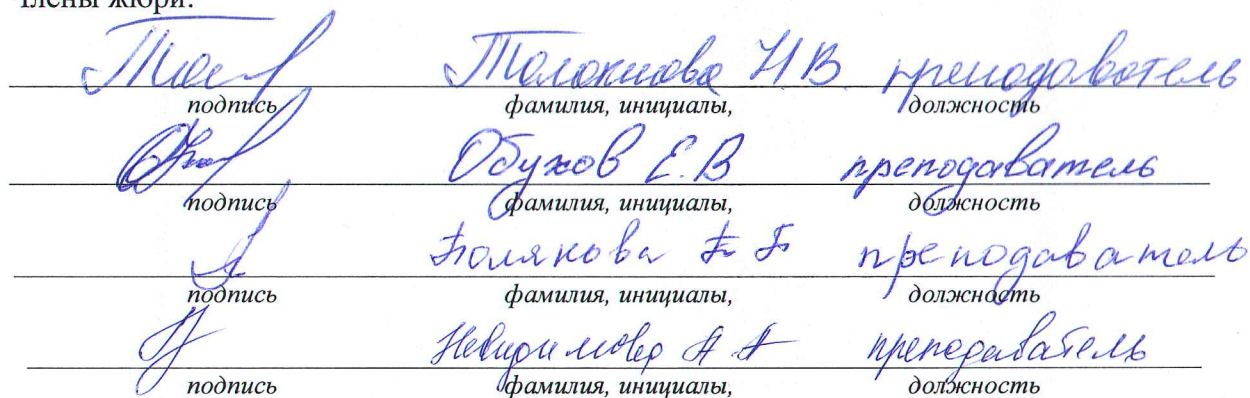 Члены жюри:
Толокнова Н В. преподаватель
подпись фамилия, инициалы, должность
Обухов Е.В преподаватель
подпись фамилия, инициалы, должность
преподаватель
подпись фамилия, инициалы, должность
Невидимова А А преподаватель
подпись фамилия, инициалы, должность